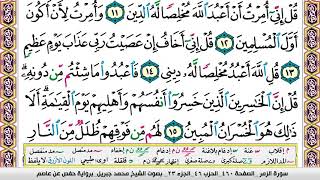 قُلْ إِنِّىٓ أُمِرْتُ أَنْ أَعْبُدَ ٱللَّهَ مُخْلِصًا لَّهُ ٱلدِّينَ ١١ وَأُمِرْتُ لِأَنْ أَكُونَ
أَوَّلَ ٱلْمُسْلِمِينَ ١٢ قُلْ إِنِّىٓ أَخَافُ إِنْ عَصَيْتُ رَبِّى عَذَابَ يَوْمٍ عَظِيمٍ
١٣ قُلِ ٱللَّهَ أَعْبُدُ مُخْلِصًا لَّهُۥ دِينِى ١٤ فَٱعْبُدُوا۟ مَا شِئْتُم مِّن دُونِهِۦ
قُلْ إِنَّ ٱلْخَـٰسِرِينَ ٱلَّذِينَ خَسِرُوٓا۟ أَنفُسَهُمْ وَأَهْلِيهِمْ يَوْمَ ٱلْقِيَـٰمَةِ أَلَا
ذَٰلِكَ هُوَ ٱلْخُسْرَانُ ٱلْمُبِينُ ١٥ لَهُم مِّن فَوْقِهِمْ ظُلَلٌ مِّنَ ٱلنَّارِ
سورة الزمر - الصفحة ٤٦٠ - الحزب ٤٦ - الجزء ٢٣ - بصوت الشيخ محمد جبريل - برواية حفص عن عاصم